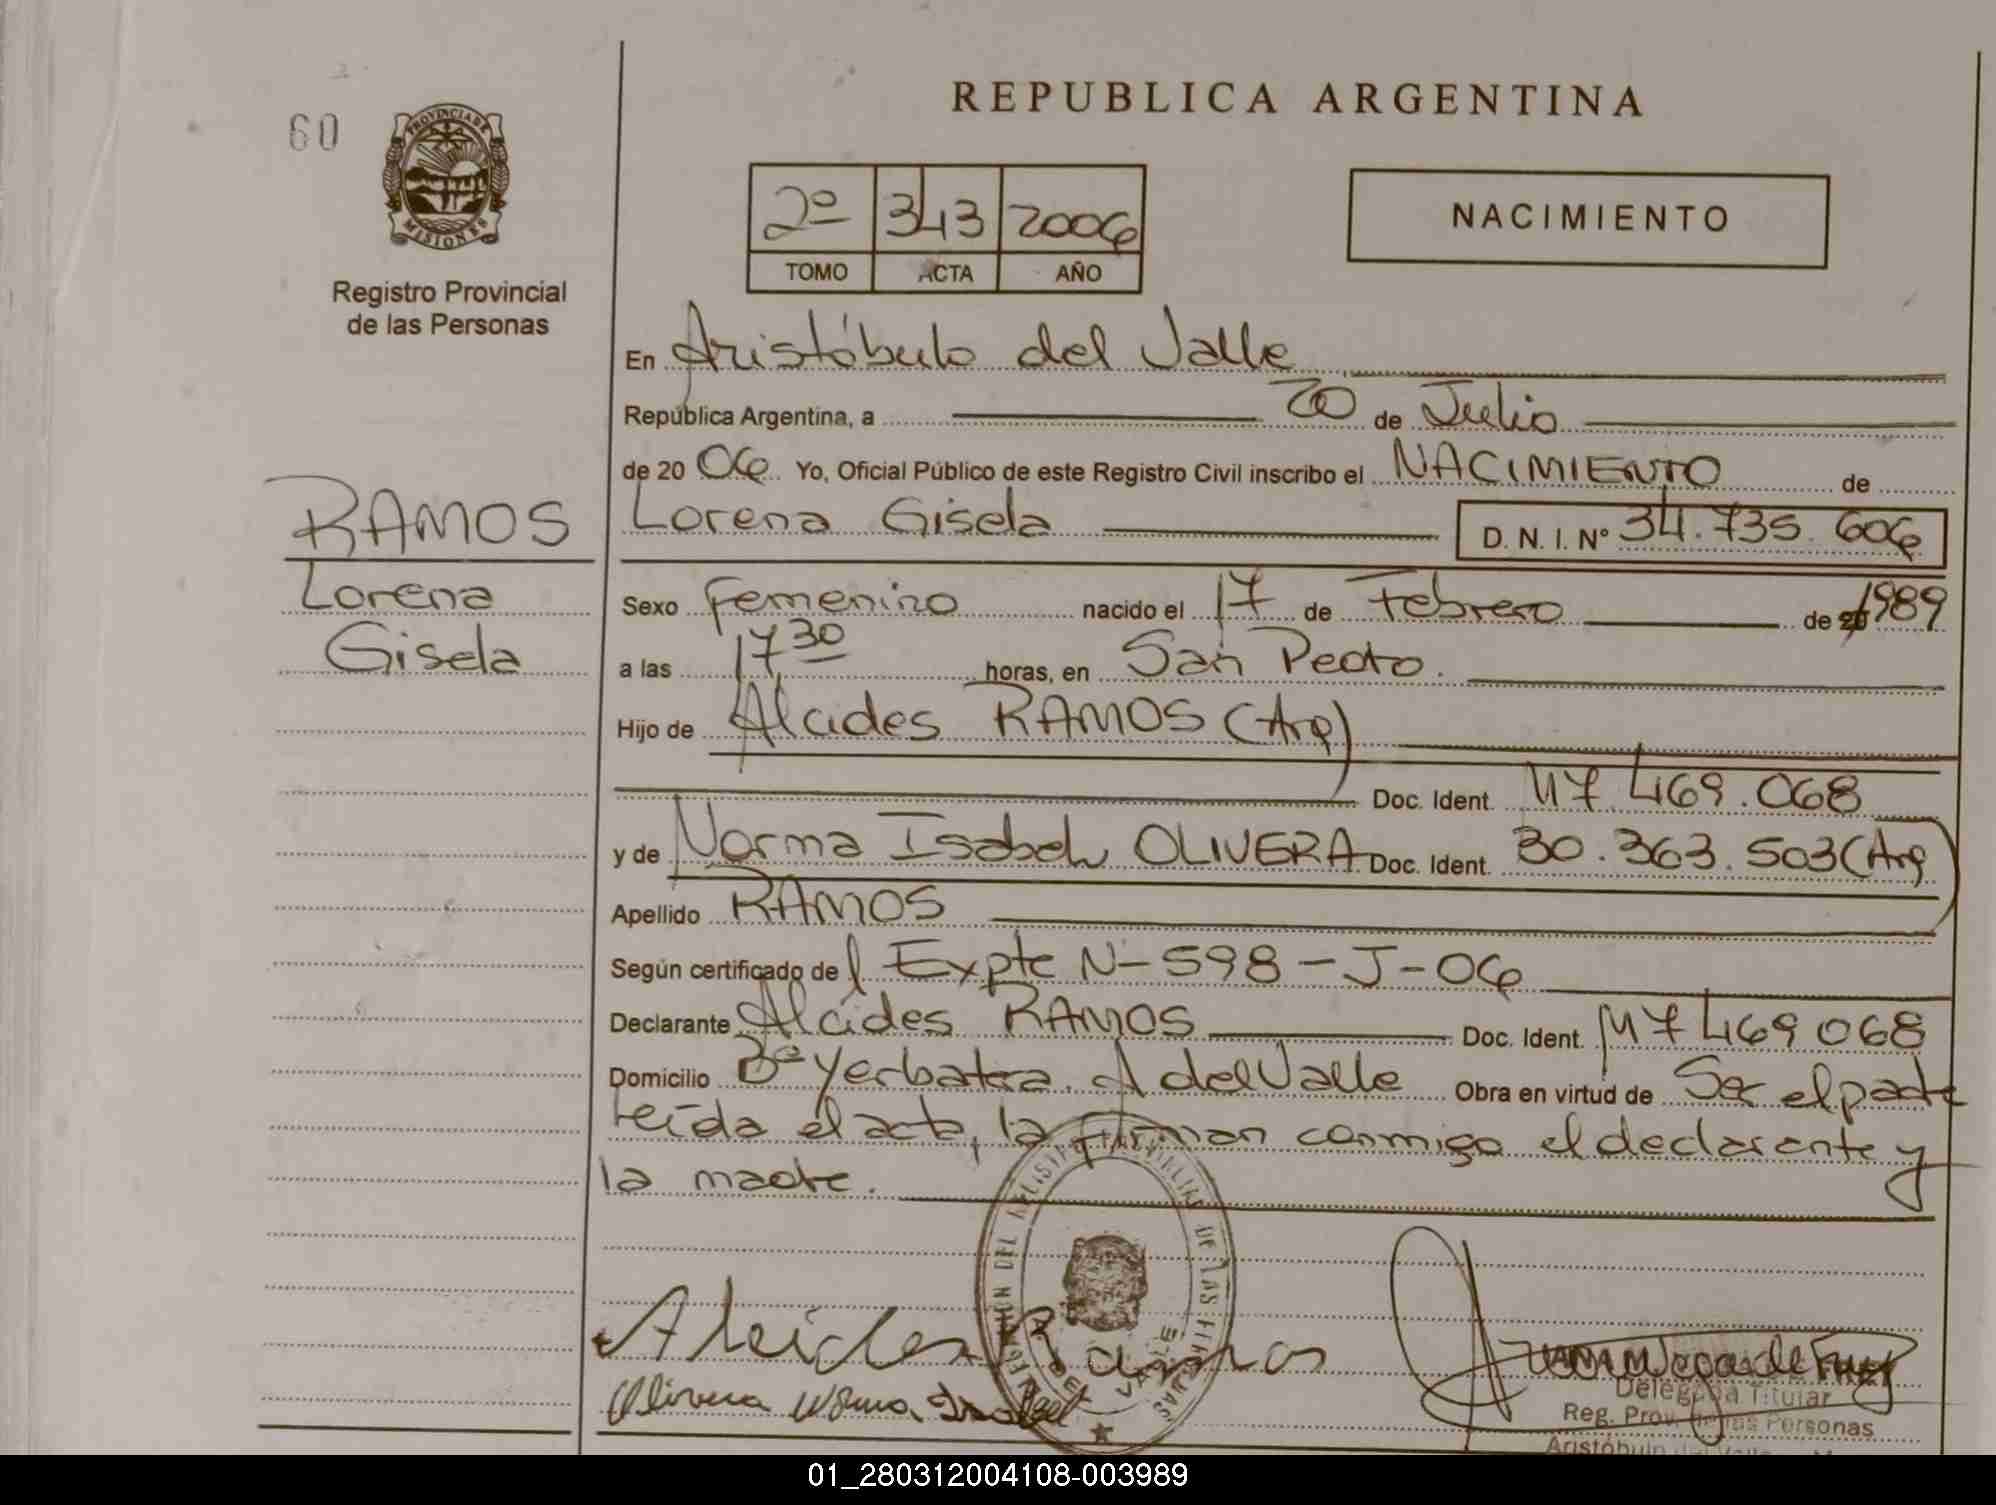 60
PROVINCIA DE
MISIONES
Registro Provincial
de las Personas
RAMOS
Lorena
Gisela
REPUBLICA ARGENTINA
2º 343 2006
TOMO ACTA AÑO
NACIMIENTO
En Aristóbulo del Valle
República Argentina, a 20 de Julio
de 20 06 Yo, Oficial Público de este Registro Civil inscribo el NACIMIENTO de
Lorena Gisela D. N. I. Nº 34.735.606
Sexo Femenino nacido el 17 de Febrero de 1989
a las 17 30 horas, en San Pedro.
Hijo de Alcides RAMOS (Arg)
Doc. Ident. M7.469.068
y de Norma Isabel OLIVERA Doc. Ident. 30.363.503 (Arg)
Apellido RAMOS
Según certificado del Expte N-598-J-06
Declarante Alcides RAMOS Doc. Ident. M7469068
Domicilio Bº Yerbatera. A del Valle Obra en virtud de Ser el padre
leída el acta, la firman conmigo el declarante y
la madre.
Alcides Ramos
Olivera Norma Isabel
DEL VALLE
Delegada Titular
Reg. Prov. de las Personas
01_280312004108-003989